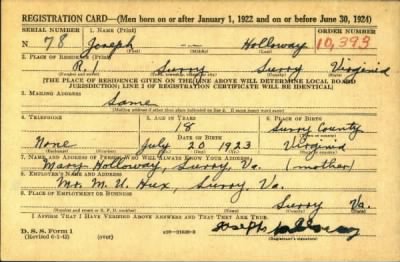 REGISTRATION CARD—(Men born on or after January 1, 1922 and on or before June 30, 1924)
SERIAL NUMBER 1. NAME (Print) ORDER NUMBER
N 78 Joseph Holloway 10,393
(First) (Middle) (Last)
2. PLACE OF RESIDENCE (Print)
R. 1 Surry Surry Virginia
(Number and street) (Town, township, village, or city) (County) (State)
[THE PLACE OF RESIDENCE GIVEN ON THE LINE ABOVE WILL DETERMINE LOCAL BOARD
JURISDICTION; LINE 2 OF REGISTRATION CERTIFICATE WILL BE IDENTICAL]
3. MAILING ADDRESS
Same
[Mailing address if other than place indicated on line 2. If same insert word same]
4. TELEPHONE 5. AGE IN YEARS 6. PLACE OF BIRTH
18 Surry County
DATE OF BIRTH (Town or county)
None July 20 1923 Virginia
(Exchange) (Number) (Mo.) (Day) (Yr.) (State or country)
7. NAME AND ADDRESS OF PERSON WHO WILL ALWAYS KNOW YOUR ADDRESS
Mary Holloway, Surry, Va. (mother)
8. EMPLOYER'S NAME AND ADDRESS
Mr. M. U. Hux, Surry, Va.
9. PLACE OF EMPLOYMENT OR BUSINESS
Surry Va.
(Number and street or R. F. D. number) (Town) (County) (State)
I AFFIRM THAT I HAVE VERIFIED ABOVE ANSWERS AND THAT THEY ARE TRUE.
Joseph Holloway
D. S. S. Form 1
(Revised 6-9-42) (over) (Registrant's signature)